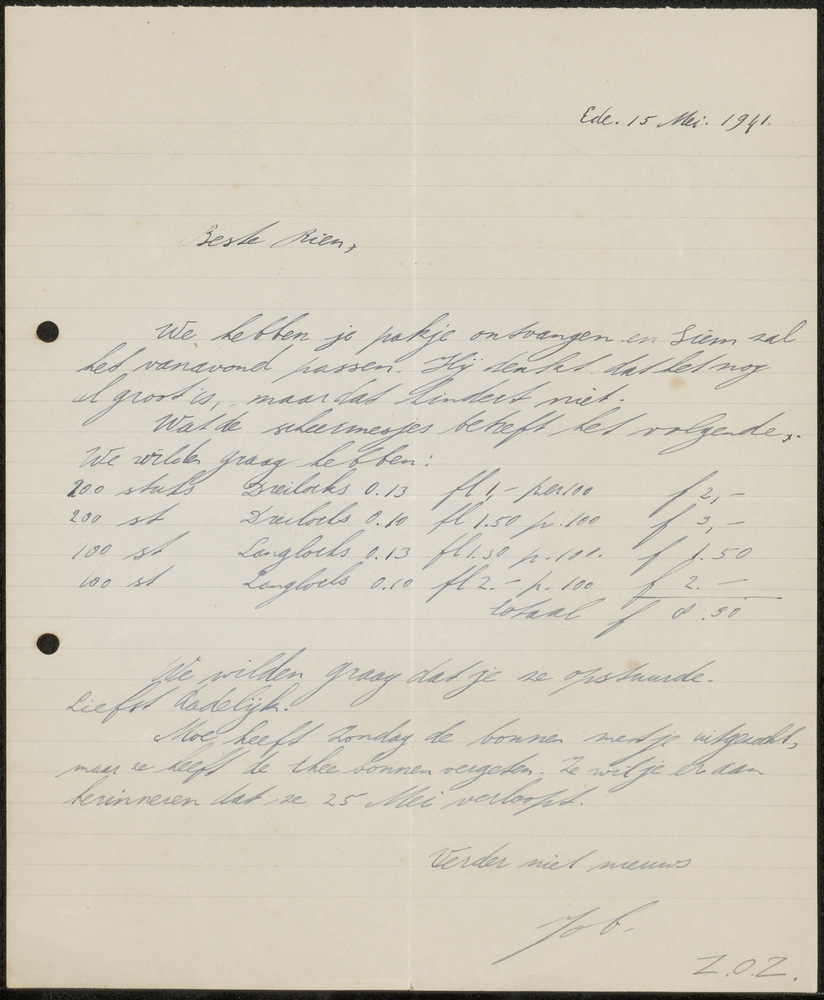 Ede. 15 Mei. 1941.
Beste Rien,
We hebben je pakje ontvangen en Siem zal
het vanavond passen. Hij denkt dat het nog
al groot is, maar dat hindert niet.
Wat de scheermesjes betreft het volgende.
We wilden graag hebben:
200 stuks Dreilochs 0.13 fl 1,- per 100 f 2,-
200 st Dreilochs 0.10 fl 1.50 p. 100 f 3,-
100 st Langlochs 0.13 fl 1.50 p. 100. f 1.50
100 st Langlochs 0.10 fl 2.- p. 100 f 2.-
totaal f 8.50
We wilden graag dat je ze opstuurde.
Liefst dadelijk.
Moe heeft Zondag de bonnen met je uitgezocht,
maar ze heeft de thee bonnen vergeten. Ze wil je er aan
herinneren dat ze 25 Mei verloopt.
Verder niet nieuws
Job.
Z.O.Z.